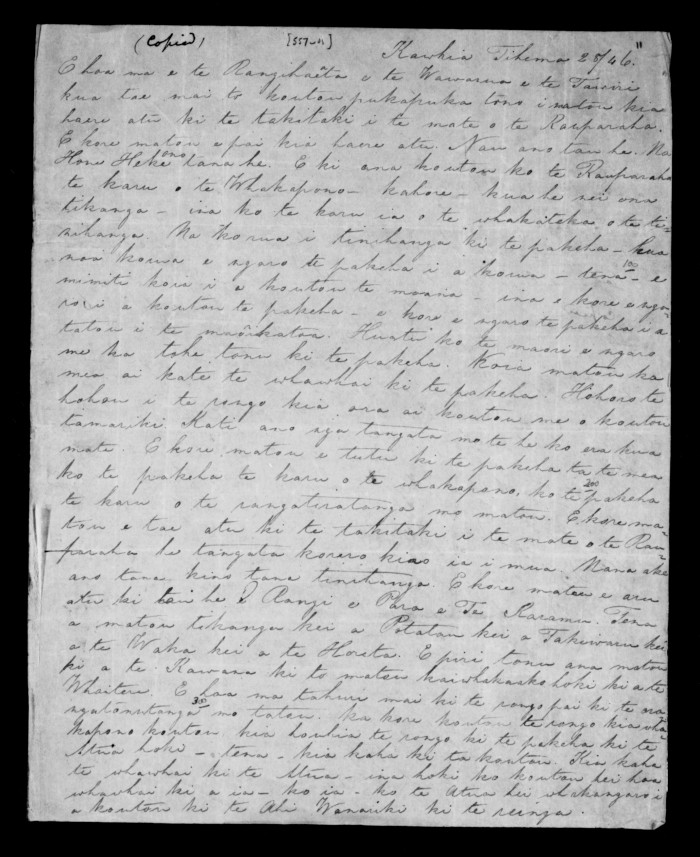 (Copied) [557-11]
Kawhia Tihema 25/46. "
E hoa ma e te Rangihaeata e te Wawarua e te
kua tae mai to koutou pukapuka tono i matou kia
haere atu ki te takitaki i te mate o te Rauparaha.
E kore matou e pai kia haere atu. Nau ano tau he. Na
Hone Heke ano tana he. E ki ana koutou ko te Rauparaha
te karu o te Whakapono - kahore - kua he nei ona
tikanga - ina ko te karu ia o te o te ti-
nihanga. Na korua i tinihanga ki te pakeha - kua
noa korua e ngaro te pakeha i a korua - tena 100 - e
mimiti koia i a koutou te moana - ina e kore e nga-
rori a koutou te pakeha - e kore e ngaro te pakeha i a
tatou i te maorikatoa. Huatu ko te maori e ngaro
me ka tohe tonu ki te pakeha. Koia matou ka
mea ai kate te whawhai ki te pakeha. Hohoro te
hohou i te rongo kia ora ai koutou me o koutou
tamariki. Kati ano nga tangata mo te he ko era kua
mate. E kore matou e tutu ki te pakeha ta te mea
ko te pakeha te karu o te whakapono, ko te 200 pakeha
te karu o te rangatiratanga mo matou. E kore ma-
tou e tae atu ki te takitaki i te mate o te Rau-
paraha he tangata korero kino ia i mua. Nana ake
ano tana kino tana tinihanga. E kore matou e aru
atu ki tau he E Rangi e Para e Te Karamu. Tena
a matou tikanga kei a Potatau kei a Takiwaru kei
a te Waka kei a te Horeta. E piri tonu ana matou
ki a te Kawana ki to matou kaiwhakaako hoki ki a te
Whaitere. E hoa ma tahuri mai ki te rongo pai ki te ora-
ngatonutanga 300 mo tatou. Ka kore koutou te rongo kia wha-
kapono koutou, kia houhia te rongo ki te pakeha ki te
Atua hoki - tena - kia kaha ki ta koutou. Kia kaha
te whawhai ki te Atua - ina hoki ko koutou hei hoa
whawhai ki a ia - ko ia - ko te Atua hei whakangaro i
a koutou ki te Ahi ki te reinga.